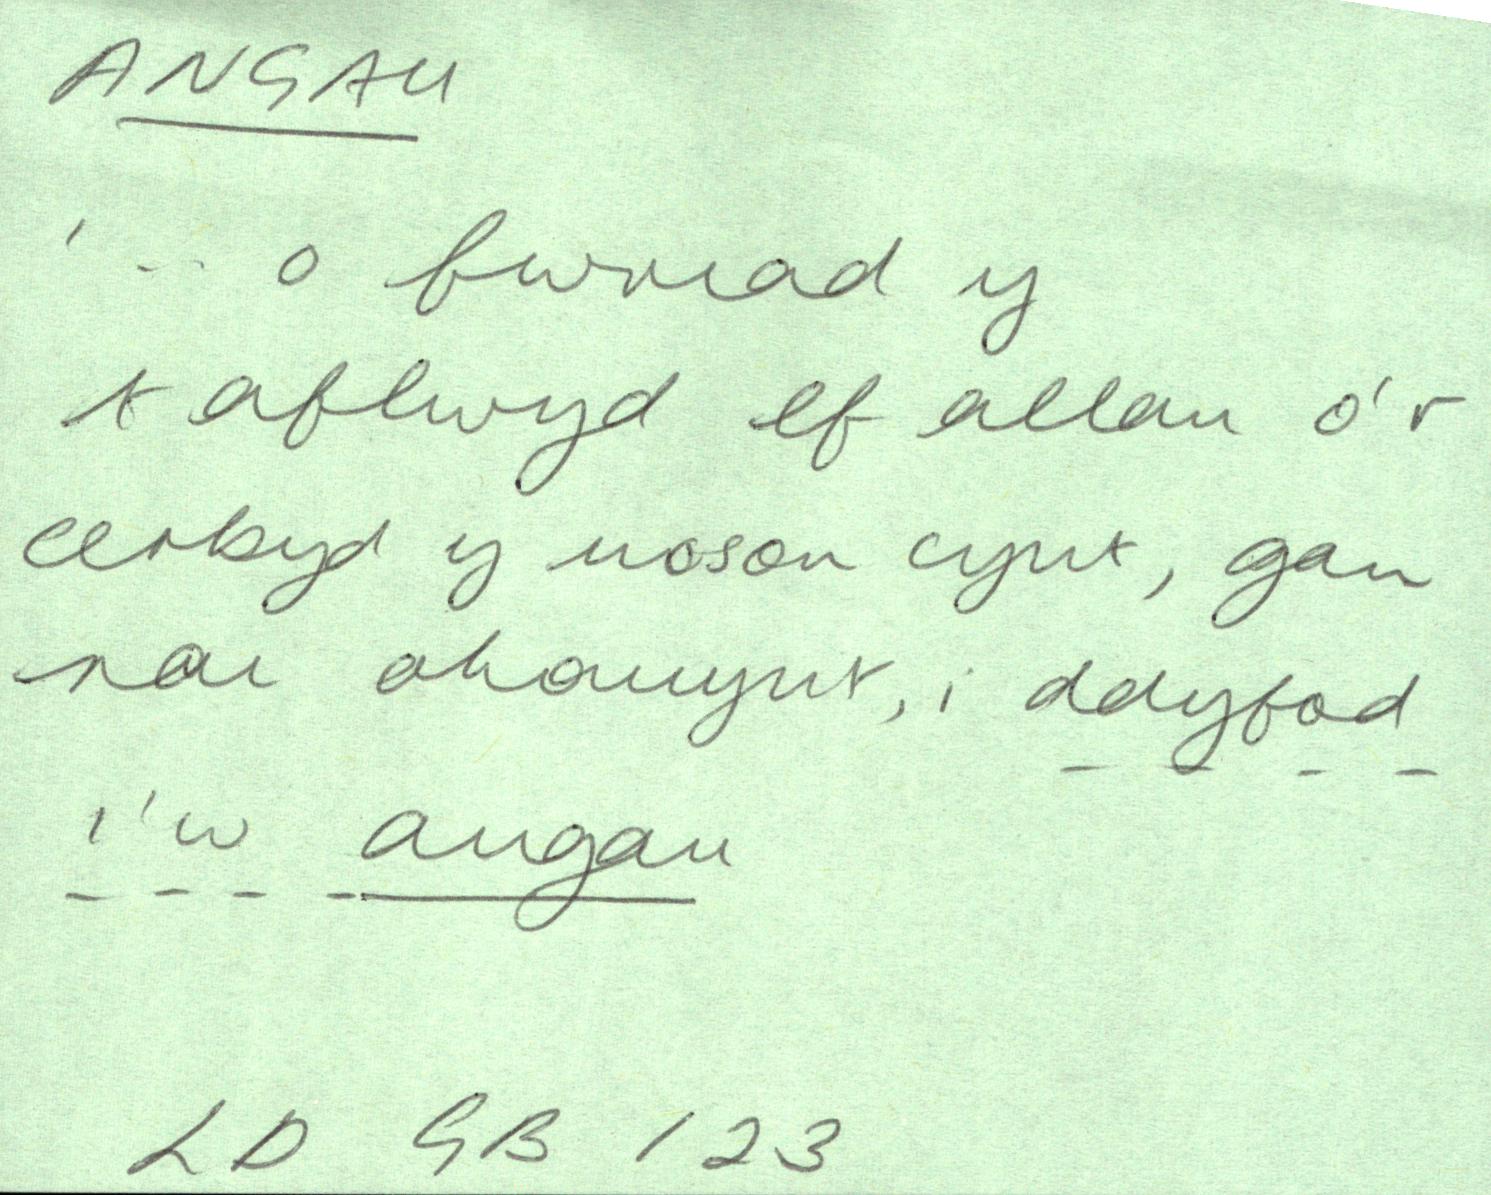 ANGAU
' ... o fwriad y
taflwyd ef allan o'r
cerbyd y noson cynt, gan
rai ohonynt, i ddyfod
i'w angau
LD GB 123